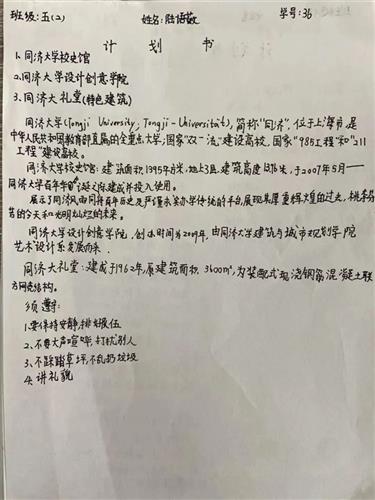 班级:五(2) 姓名:陆佰蔹 学号:36
计 划 书
1.同济大学校史馆
2.同济大学设计创意学院
3.同济大礼堂(特色建筑)
同济大学(Tongji University; Tongji-Universität),简称"同济",位于上海市,是
中华人民共和国教育部直属的全重点大学;国家"双一流"建设高校,国家"985工程"和"211
工程"建设高校。
同济大学校史馆:建筑面积1395平方米,地上3层,建筑高度13.76米,于2007年5月——
同济大学百年年校庆之际建成并投入使用。
展示了同济风雨同舟百年历史及严谨求实办学传统的平台,展现其厚重辉煌的过去,桃李芬
芳的今天和光明灿烂的未来。
同济大学设计创意学院,创办时间为2009年,由同济大学建筑与城市规划学院
艺术设计系发展而来.
同济大礼堂:建成于1962年,原建筑面积3600m²,为装配式现浇钢筋混凝土联
方网壳结构。
须 遵:
1.要保持安静,排好队伍
2、不要大声喧哗,打扰别人
3、不踩踏草坪,不乱扔垃圾
4.讲礼貌